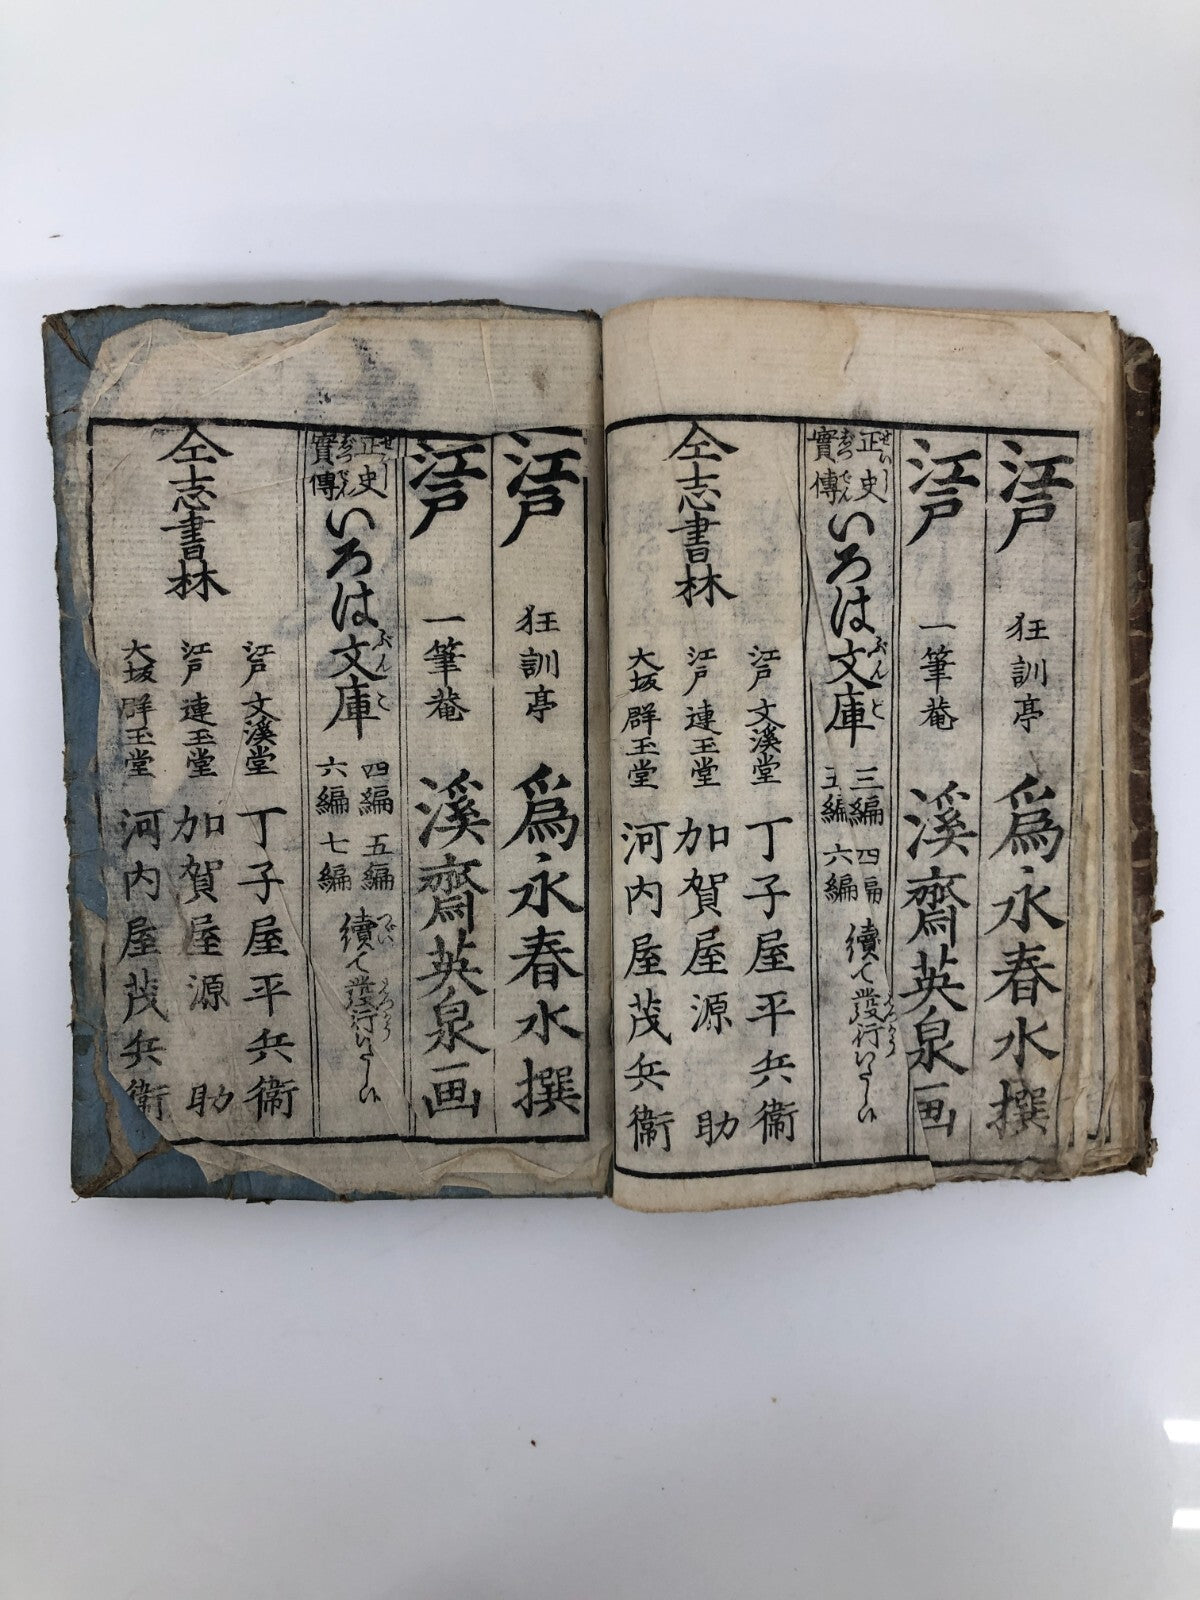 江戸 狂訓亭 為永春水撰
江戸 一筆菴 溪齋英泉画
正史 せいし
實傳 じつでん
いろは文庫 ぶんこ 三編 四編
五編 六編
續て發行いたし
仝志書林
江戸 文溪堂 丁子屋平兵衞
江戸 連玉堂 加賀屋源助
大坂 群玉堂 河内屋茂兵衞
江戸 狂訓亭 為永春水撰
江戸 一筆菴 溪齋英泉画
正史 せいし
實傳 じつでん
いろは文庫 ぶんこ 四編 五編
六編 七編
續て發行いたし
仝志書林
江戸 文溪堂 丁子屋平兵衞
江戸 連玉堂 加賀屋源助
大坂 群玉堂 河内屋茂兵衞